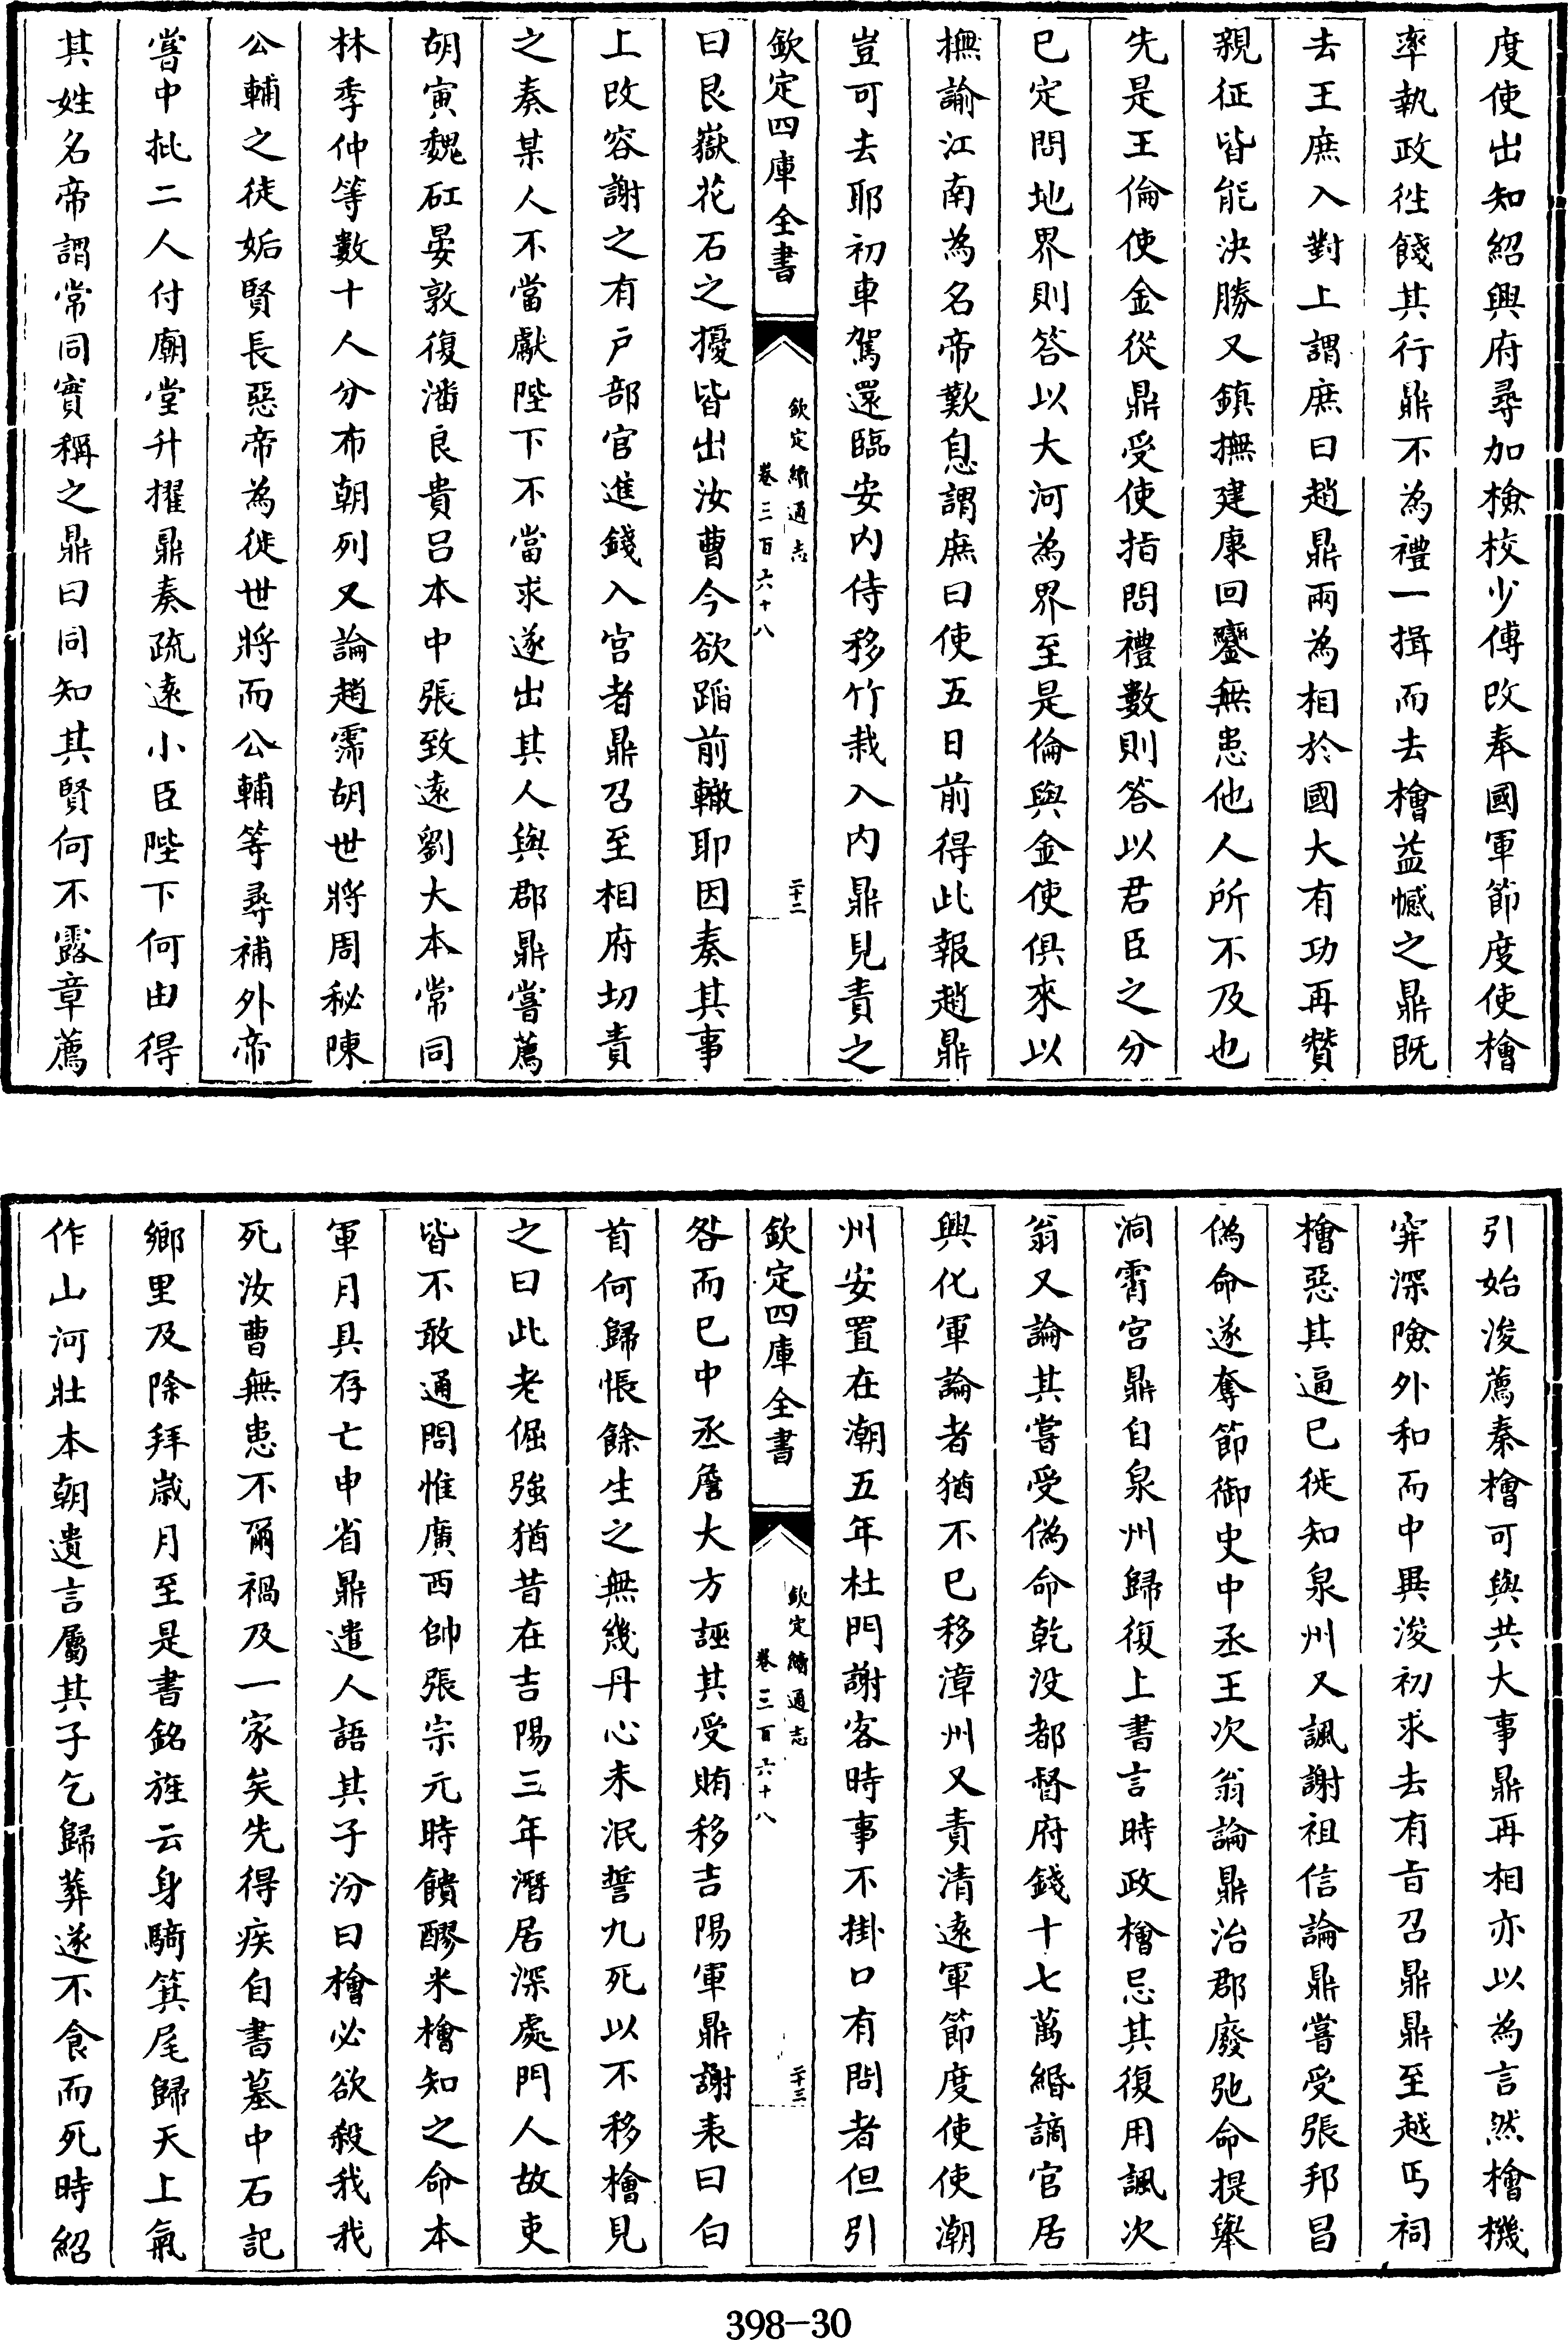 度使出知紹興府尋加檢校少傅改奉國軍節度使檜
率執政徃餞其行鼎不為禮一揖而去檜益憾之鼎既
去王庶入對上謂庶曰趙鼎兩為相於國大有功再贊
親征皆能決勝又鎮撫建康回鑾無患他人所不及也
先是王倫使金從鼎受使指問禮數則答以君臣之分
已定問地界則答以大河為界至是倫與金使俱來以
撫諭江南為名帝歎息謂庶曰使五日前得此報趙鼎
豈可去耶初車駕還臨安内侍移竹栽入内鼎見責之
欽定四庫全書
欽定續通志
卷三百六十八
二十二
曰艮嶽花石之擾皆出汝曹今欲蹈前轍耶因奏其事
上改容謝之有戶部官進錢入宮者鼎召至相府切責
之奏某人不當獻陛下不當求遂出其人與郡鼎嘗薦
胡寅魏矼晏敦復潘良貴呂本中張致遠劉大本常同
林季仲等數十人分布朝列又論趙霈胡世將周秘陳
公輔之徒姤賢長惡帝為徙世將而公輔等尋補外帝
嘗中批二人付廟堂升擢鼎奏疏遠小臣陛下何由得
其姓名帝謂常同實稱之鼎曰同知其賢何不露章薦
引始浚薦秦檜可與共大事鼎再相亦以為言然檜機
穽深險外和而中異浚初求去有㫖召鼎鼎至越丐祠
檜惡其逼已徙知泉州又諷謝祖信論鼎嘗受張邦昌
偽命遂奪節御史中丞王次翁論鼎治郡廢弛命提舉
洞霄宮鼎自泉州歸復上書言時政檜忌其復用諷次
翁又論其嘗受偽命乾没都督府錢十七萬緡謫官居
興化軍論者猶不已移漳州又責清遠軍節度使使潮
州安置在潮五年杜門謝客時事不掛口有問者但引
欽定四庫全書
欽定續通志
卷三百六十八
二十三
咎而已中丞詹大方誣其受賄移吉陽軍鼎謝表曰白
首何歸悵餘生之無幾丹心未泯誓九死以不移檜見
之曰此老倔強猶昔在吉陽三年潛居深處門人故吏
皆不敢通問惟廣西帥張宗元時饋醪米檜知之命本
軍月具存亡申省鼎遣人語其子汾曰檜必欲殺我我
死汝曹無患不爾禍及一家矣先得疾自書墓中石記
鄉里及除拜歲月至是書銘旌云身騎箕尾歸天上氣
作山河壯本朝遺言屬其子乞歸葬遂不食而死時紹
398-30